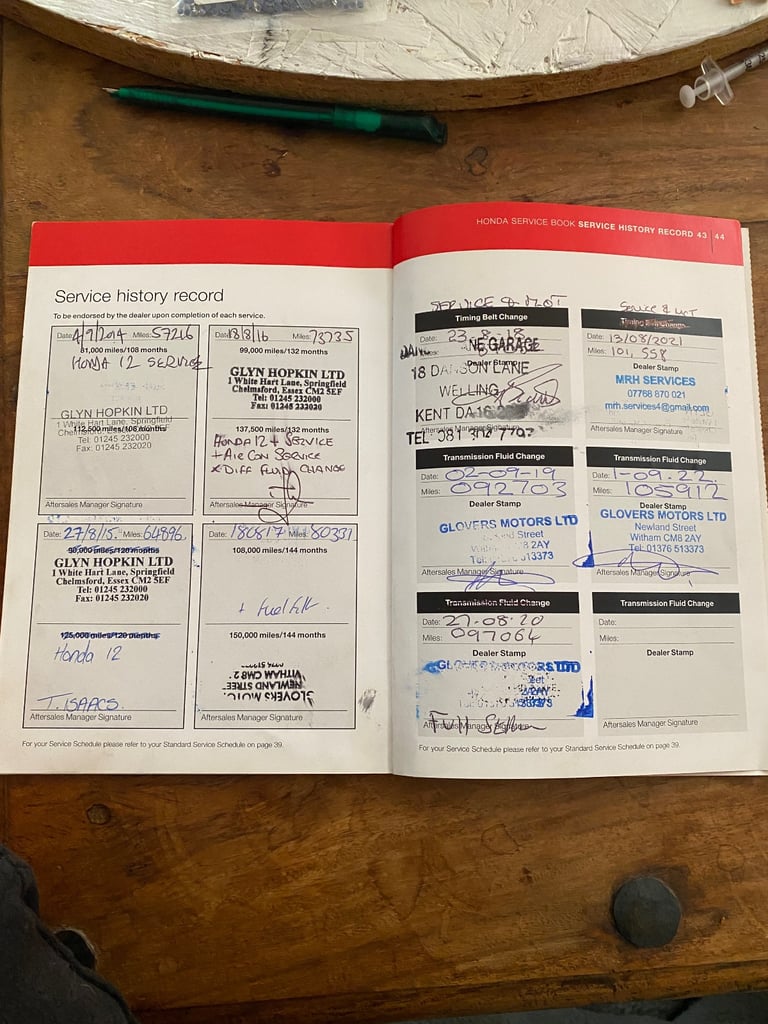 Service history record
To be endorsed by the dealer upon completion of each service.
Date: 4/9/2014 Miles: 57216
81,000 miles/108 months
HONDA 12 SERVICE
GLYN HOPKIN LTD
1 White Hart Lane, Springfield
112,500 miles/108 months
Chelmsford, Essex CM2 5EF
Tel: 01245 232000
Fax: 01245 232020
Aftersales Manager Signature
Date: 18/8/16 Miles: 73735
99,000 miles/132 months
GLYN HOPKIN LTD
1 White Hart Lane, Springfield
Chelmsford, Essex CM2 5EF
Tel: 01245 232000
Fax: 01245 232020
137,500 miles/132 months
HONDA 12 + SERVICE
+ Air Con SERVICE
x DIFF FLUID CHANGE
Aftersales Manager Signature
Date: 27/8/15. Miles: 64896
90,000 miles/120 months
GLYN HOPKIN LTD
1 White Hart Lane, Springfield
Chelmsford, Essex CM2 5EF
Tel: 01245 232000
Fax: 01245 232020
125,000 miles/120 months
Honda 12
T. ISAACS
Aftersales Manager Signature
Date: 180817 Miles: 80331
108,000 miles/144 months
+ Fuel Filt.
150,000 miles/144 months
GLOVERS MOTO
NEWLAND STREET
WITHAM CM8 2
Aftersales Manager Signature
For your Service Schedule please refer to your Standard Service Schedule on page 39.
HONDA SERVICE BOOK SERVICE HISTORY RECORD 43 | 44
SERVICE & MOT
Timing Belt Change
Date: 23-8-18
NE GARAGE
Dealer Stamp
18 DANSON LANE
WELLING
KENT DA16
TEL
Aftersales Manager Signature
Service & MOT
Timing Belt Change
Date: 13/08/2021
Miles: 101,558
Dealer Stamp
MRH SERVICES
07768 870 021
mrh.services4@gmail.com
Aftersales Manager Signature
Transmission Fluid Change
Date: 02-09-19
Miles: 092703
Dealer Stamp
GLOVERS MOTORS LTD
Street
2AY
513373
Aftersales Manager Signature
Transmission Fluid Change
Date: 1-09.22.
Miles: 105912
Dealer Stamp
GLOVERS MOTORS LTD
Newland Street
Witham CM8 2AY
Tel: 01376 513373
Aftersales Manager Signature
Transmission Fluid Change
Date: 27-08-20
Miles: 097064
Dealer Stamp
Aftersales Manager Signature
Transmission Fluid Change
Date:
Miles:
Dealer Stamp
For your Service Schedule please refer to your Standard Service Schedule on page 39.